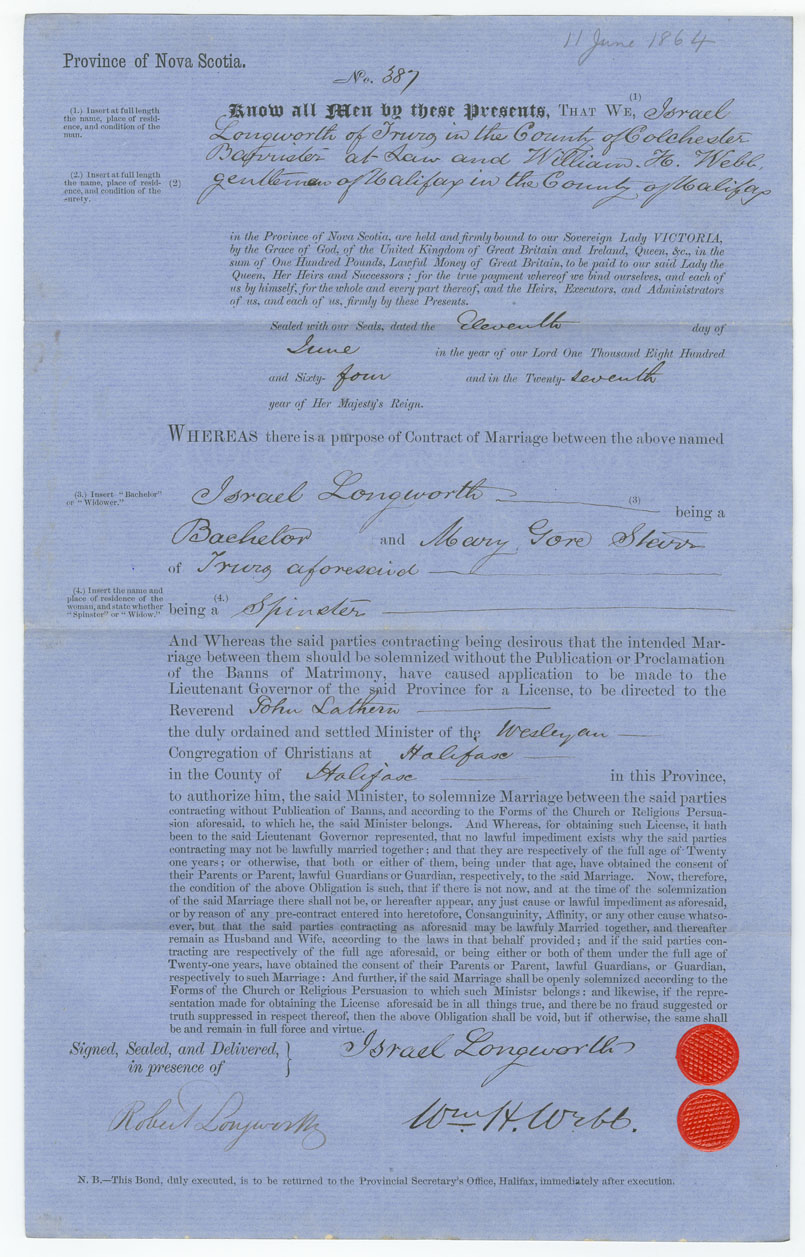 11 June 1864
Province of Nova Scotia.
No. 387
(1.) Insert at full length
the name, place of resid-
ence, and condition of the
man.
(1)
Know all Men by these Presents, THAT WE, Israel
Longworth of Truro in the County of Colchester
Barrister at Law and William. H. Webb,
(2.) Insert at full length
the name, place of resid-
ence, and condition of the
surety.
(2)
gentleman of Halifax in the County of Halifax
in the Province of Nova Scotia, are held and firmly bound to our Sovereign Lady VICTORIA,
by the Grace of God, of the United Kingdom of Great Britain and Ireland, Queen, &c., in the
sum of One Hundred Pounds, Lawful Money of Great Britain, to be paid to our said Lady the
Queen, Her Heirs and Successors; for the true payment whereof we bind ourselves, and each of
us by himself, for the whole and every part thereof, and the Heirs, Executors, and Administrators
of us, and each of us, firmly by these Presents.
Sealed with our Seals, dated the Eleventh day of
June in the year of our Lord One Thousand Eight Hundred
and Sixty- four and in the Twenty- seventh
year of Her Majesty's Reign.
WHEREAS there is a purpose of Contract of Marriage between the above named
(3.) Insert "Bachelor"
or "Widower."
Israel Longworth (3) being a
Bachelor and Mary Gore Starr
of Truro aforesaid
(4.) Insert the name and
place of residence of the
woman, and state whether
"Spinster" or "Widow."
being a (4.) Spinster
And Whereas the said parties contracting being desirous that the intended Mar-
riage between them should be solemnized without the Publication or Proclamation
of the Banns of Matrimony, have caused application to be made to the
Lieutenant Governor of the said Province for a License, to be directed to the
Reverend John Lathern
the duly ordained and settled Minister of the Wesleyan
Congregation of Christians at Halifax
in the County of Halifax in this Province,
to authorize him, the said Minister, to solemnize Marriage between the said parties
contracting without Publication of Banns, and according to the Forms of the Church or Religious Persua-
sion aforesaid, to which he, the said Minister belongs. And Whereas, for obtaining such License, it hath
been to the said Lieutenant Governor represented, that no lawful impediment exists why the said parties
contracting may not be lawfully married together; and that they are respectively of the full age of Twenty
one years; or otherwise, that both or either of them, being under that age, have obtained the consent of
their Parents or Parent, lawful Guardians or Guardian, respectively, to the said Marriage. Now, therefore,
the condition of the above Obligation is such, that if there is not now, and at the time of the solemnization
of the said Marriage there shall not be, or hereafter appear, any just cause or lawful impediment as aforesaid,
or by reason of any pre-contract entered into heretofore, Consanguinity, Affinity, or any other cause whatso-
ever, but that the said parties contracting as aforesaid may be lawfuly Married together, and thereafter
remain as Husband and Wife, according to the laws in that behalf provided; and if the said parties con-
tracting are respectively of the full age aforesaid, or being either or both of them under the full age of
Twenty-one years, have obtained the consent of their Parents or Parent, lawful Guardians, or Guardian,
respectively to such Marriage: And further, if the said Marriage shall be openly solemnized according to the
Forms of the Church or Religious Persuasion to which such Minister belongs; and likewise, if the repre-
sentation made for obtaining the License aforesaid be in all things true, and there be no fraud suggested or
truth suppressed in respect thereof, then the above Obligation shall be void, but if otherwise, the same shall
be and remain in full force and virtue.
Signed, Sealed, and Delivered,
in presence of
Israel Longworth
Robert Longworth
Wm H. Webb.
N. B.—This Bond, duly executed, is to be returned to the Provincial Secretary's Office, Halifax, immediately after execution.